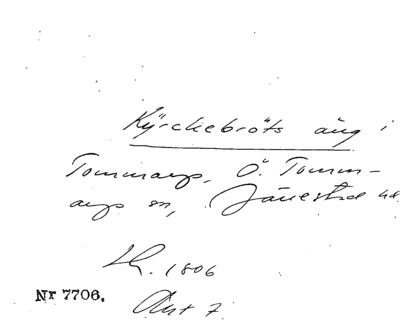 Kyrckebröts äng i
Tommarp, Ö. Tomm-
arps sn, Järrestad hd.
Lh. 1806
Akt 7
Nr 7706.